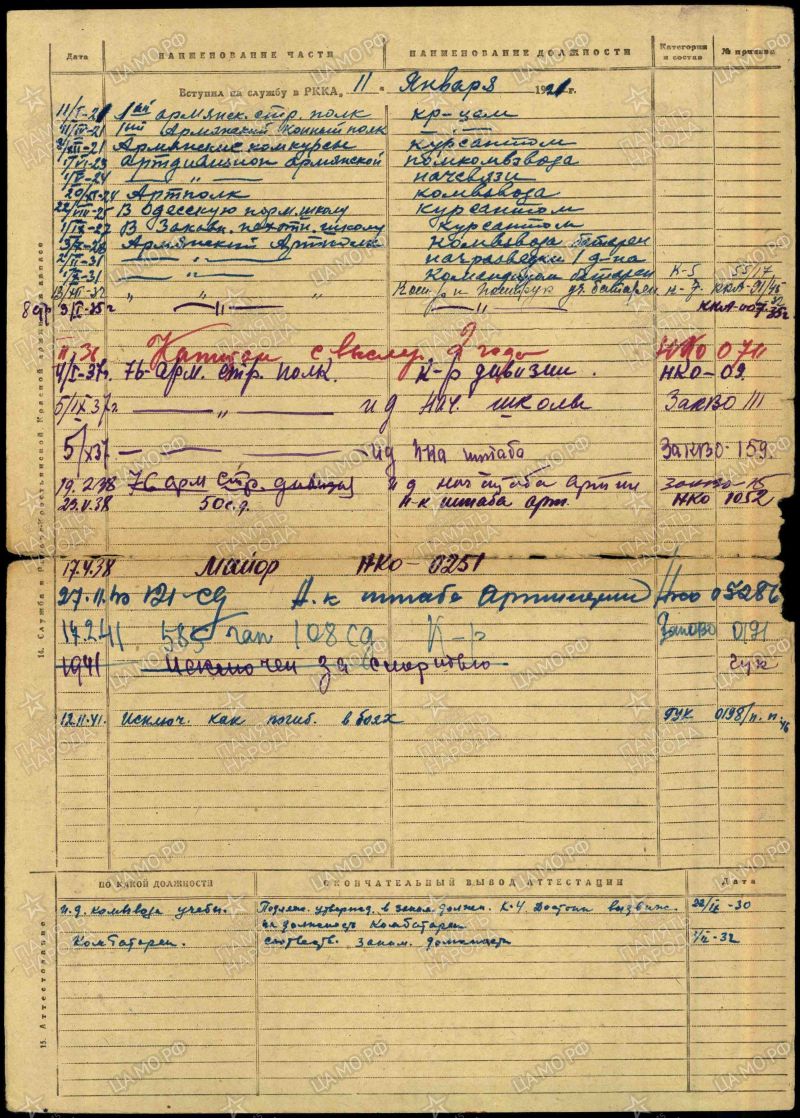 Дата НАИМЕНОВАНИЕ ЧАСТИ НАИМЕНОВАНИЕ ДОЛЖНОСТИ Категория и состав № приказа
Вступил на службу в РККА „11" Января 1921 г.
11/I-21 1ый армянск. стр. полк кр-цем
1ый Армянский конный полк "
21 Армянские комкурсы курсантом
23 Артдивизион армянской помкомвзвода
24 — " — начсвязи
20/XI-24 Артполк комвзвода
22/VIII-25 В Одесскую норм. школу курсантом
1/IX-27 В Закавк. пехотн. школу курсантом
3/X-28 Армянский Артполк Комвзвода батареи
2/II-31 — " — нач. разведки 1 д-на
1/X-31 — " — Командиром батареи К-5 55/7
32 " " " Ком-р и Политрук уч. батареи К-7 ККА-01/45
32
8 стр 9/II-35г — " — — " — ККА-007 35г.
II.36 Капитан с выслуг. 2 года НКО 0711
4/I-37г. 76 арм. стр. полк. к-р дивизии. НКО-09.
5/IX 37г — " — ид нач. школы ЗакВО 111
5/X37 — — — ид н-ка штаба ЗакВО-159.
19.2.38 76 арм стр. дивизия и д нач штаба артил ЗакВО-15
23.V.38 50 с.д. н-к штаба арт. НКО 1052
17.4.38 Майор НКО-0251
27.11.40 121-сд Н.к штаба Артиллерии Нко 05286
14.2.41 585 гап 108 сд К-р Запово 0171
1941 Исключен за смертью ГУК
12.11.41. Исключ. как погиб. в боях ГУК 0198/п. п. 46
14. Служба в Рабоче-Крестьянской Красной армии и в запасе
ПО КАКОЙ ДОЛЖНОСТИ ОКОНЧАТЕЛЬНЫЙ ВЫВОД АТТЕСТАЦИИ Дата
и.д. комвзвода учебн. Подлеж. утвержд. в заним. должн. К-4. Достоин выдвиж. 22/IX-30
на должность Комбатареи
Комбатареи. Соответств. заним. должности 1/II-32
15. Аттестование
ПАМЯТЬ НАРОДА
ЦАМО.РФ